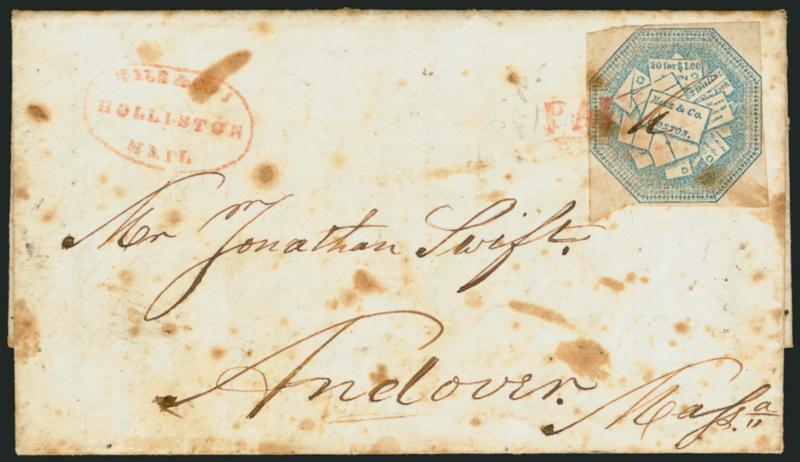 HALE & CO'S
HOLLISTON
MAIL
PAI
20 for $1.00
Hale & Co.
BOSTON.
Mr Jonathan Swift.
Andover.
Maſs.a